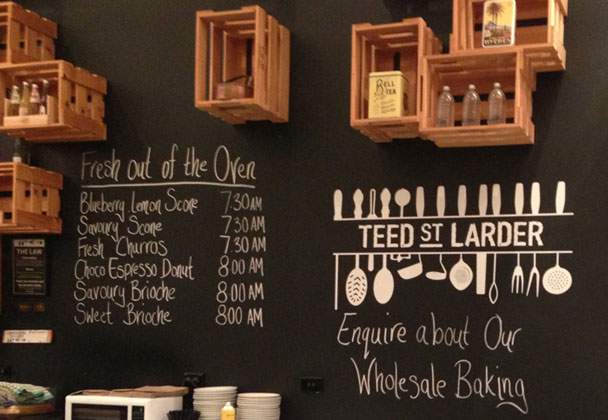 Fresh out of the Oven
Blueberry Lemon Scone 7.30AM
Savoury Scone 7.30 AM
Fresh Churros 7.30 AM
Choco Espresso Donut 8.00 AM
Savoury Brioche 8.00 AM
Sweet Brioche 8.00 AM
BELL
TEA
TEED ST LARDER
Enquire about Our
Wholesale Baking
THE LAW